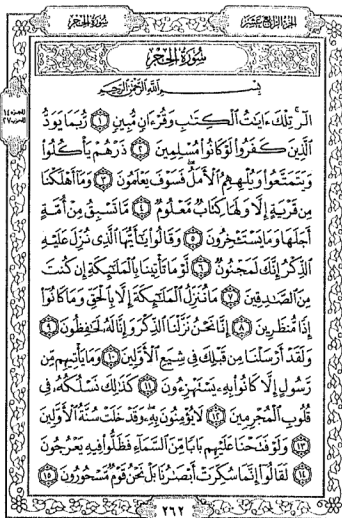 الجزء الرابع عشر سورة الحجر
سورة الحجر
بسم الله الرحمن الرحيم
الٓر ۚ تِلْكَ ءَايَٰتُ ٱلْكِتَٰبِ وَقُرْءَانٍ مُّبِينٍ ۝١ رُّبَمَا يَوَدُّ
ٱلَّذِينَ كَفَرُوا۟ لَوْ كَانُوا۟ مُسْلِمِينَ ۝٢ ذَرْهُمْ يَأْكُلُوا۟
وَيَتَمَتَّعُوا۟ وَيُلْهِهِمُ ٱلْأَمَلُ ۖ فَسَوْفَ يَعْلَمُونَ ۝٣ وَمَآ أَهْلَكْنَا
مِن قَرْيَةٍ إِلَّا وَلَهَا كِتَابٌ مَّعْلُومٌ ۝٤ مَّا تَسْبِقُ مِنْ أُمَّةٍ
أَجَلَهَا وَمَا يَسْتَـْٔخِرُونَ ۝٥ وَقَالُوا۟ يَٰٓأَيُّهَا ٱلَّذِى نُزِّلَ عَلَيْهِ
ٱلذِّكْرُ إِنَّكَ لَمَجْنُونٌ ۝٦ لَّوْ مَا تَأْتِينَا بِٱلْمَلَٰٓئِكَةِ إِن كُنتَ
مِنَ ٱلصَّٰدِقِينَ ۝٧ مَا نُنَزِّلُ ٱلْمَلَٰٓئِكَةَ إِلَّا بِٱلْحَقِّ وَمَا كَانُوٓا۟
إِذًا مُّنظَرِينَ ۝٨ إِنَّا نَحْنُ نَزَّلْنَا ٱلذِّكْرَ وَإِنَّا لَهُۥ لَحَٰفِظُونَ ۝٩
وَلَقَدْ أَرْسَلْنَا مِن قَبْلِكَ فِى شِيَعِ ٱلْأَوَّلِينَ ۝١٠ وَمَا يَأْتِيهِم مِّن
رَّسُولٍ إِلَّا كَانُوا۟ بِهِۦ يَسْتَهْزِءُونَ ۝١١ كَذَٰلِكَ نَسْلُكُهُۥ فِى
قُلُوبِ ٱلْمُجْرِمِينَ ۝١٢ لَا يُؤْمِنُونَ بِهِۦ ۖ وَقَدْ خَلَتْ سُنَّةُ ٱلْأَوَّلِينَ
۝١٣ وَلَوْ فَتَحْنَا عَلَيْهِم بَابًا مِّنَ ٱلسَّمَآءِ فَظَلُّوا۟ فِيهِ يَعْرُجُونَ
۝١٤ لَقَالُوٓا۟ إِنَّمَا سُكِّرَتْ أَبْصَٰرُنَا بَلْ نَحْنُ قَوْمٌ مَّسْحُورُونَ ۝١٥
٢٦٢